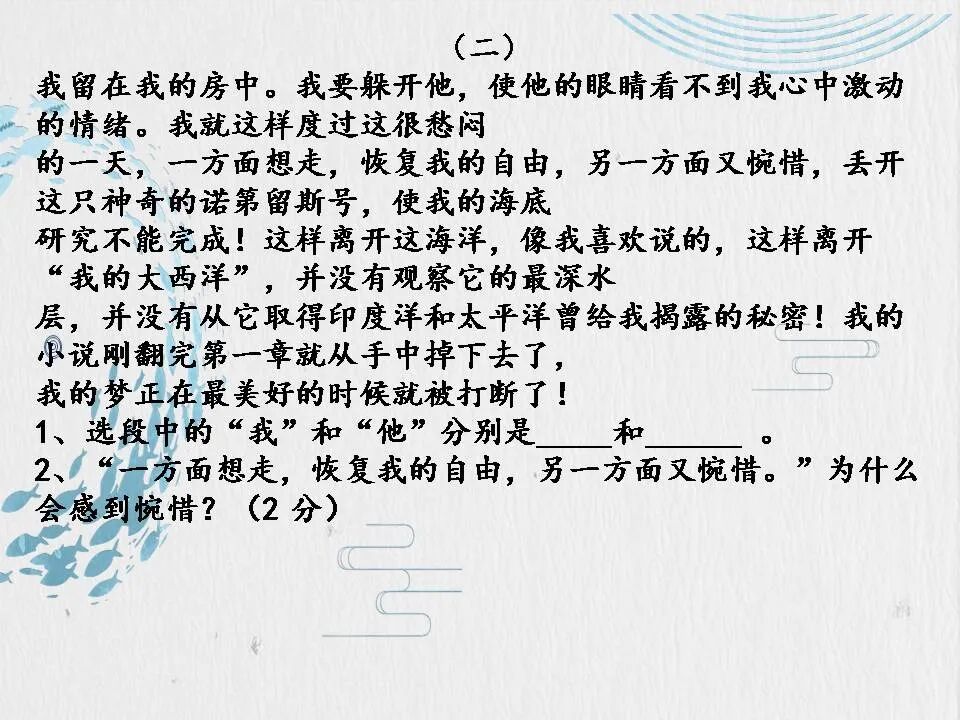 （二）
我留在我的房中。我要躲开他，使他的眼睛看不到我心中激动
的情绪。我就这样度过这很愁闷
的一天，一方面想走，恢复我的自由，另一方面又惋惜，丢开
这只神奇的诺第留斯号，使我的海底
研究不能完成！这样离开这海洋，像我喜欢说的，这样离开
“我的大西洋”，并没有观察它的最深水
层，并没有从它取得印度洋和太平洋曾给我揭露的秘密！我的
小说刚翻完第一章就从手中掉下去了，
我的梦正在最美好的时候就被打断了！
1、选段中的“我”和“他”分别是_____和______ 。
2、“一方面想走，恢复我的自由，另一方面又惋惜。”为什么
会感到惋惜？（2 分）